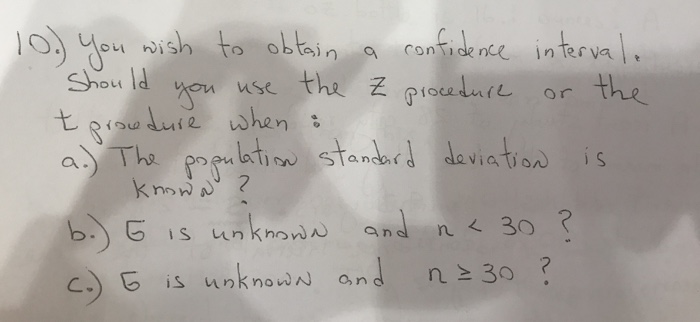 10.) You wish to obtain a confidence interval.
Should you use the Z procedure or the
t procedure when :
a.) The population standard deviation is
known ?
b.) σ is unknown and n < 30 ?
c.) σ is unknown and n ≥ 30 ?